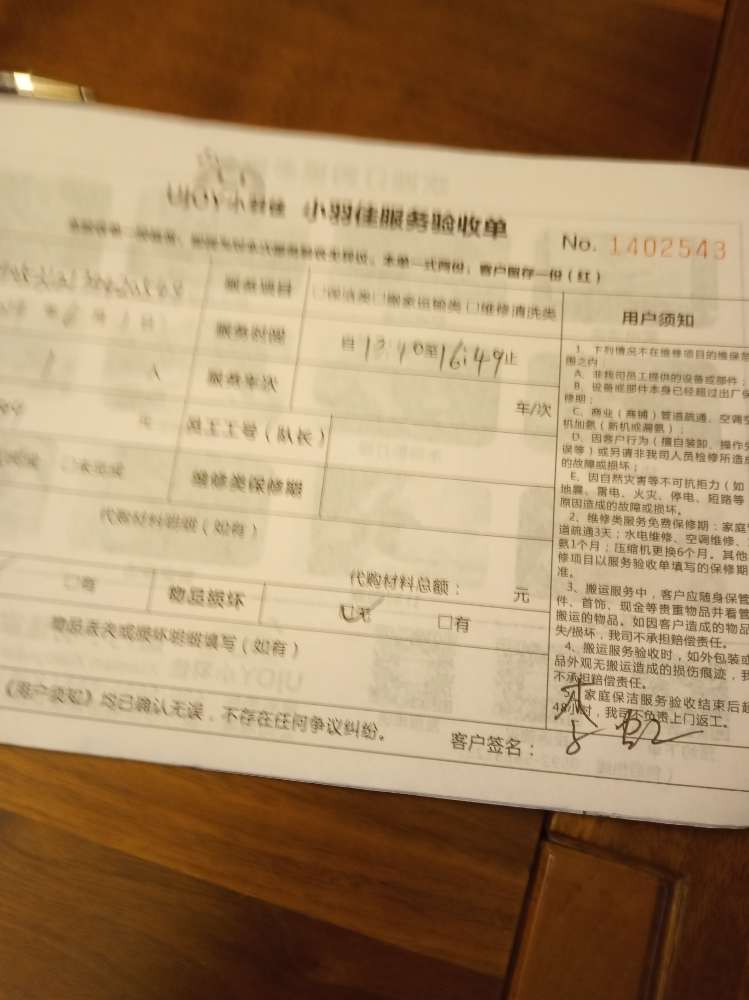 UJOY小羽佳 小羽佳服务验收单
No. 1402543
本单一式两份，客户留存一份（红）
服务项目 □保洁类□搬家运输类□维修清洗类
服务时间 自13:10至16:49止
服务车次 车/次
员工工号（队长）
□未完成 维修类保修期
代购材料明细（如有）
代购材料总额： 元
□有 物品损坏 □无 □有
物品丢失或损坏明细填写（如有）
《用户须知》均已确认无误，不存在任何争议纠纷。
客户签名：
用户须知
1、下列情况不在维修项目的维保范
围之内：
A、非我司员工提供的设备或部件；
B、设备或部件本身已经超过出厂保
修期；
C、商业（商铺）管道疏通、空调空
机加氨（新机或漏氨）；
D、因客户行为（擅自装卸、操作失
误等）或另请非我司人员检修所造成
的故障或损坏；
E、因自然灾害等不可抗拒力（如
地震、雷电、火灾、停电、短路等
原因造成的故障或损坏。
2、维修类服务免费保修期：家庭管
道疏通3天；水电维修、空调维修、
氨1个月；压缩机更换6个月。其他
修项目以服务验收单填写的保修期
准。
3、搬运服务中，客户应随身保管
件、首饰、现金等贵重物品并看管
搬运的物品。如因客户造成的物品
失/损坏，我司不承担赔偿责任。
4、搬运服务验收时，如外包装或
品外观无搬运造成的损伤痕迹，我
不承担赔偿责任。
家庭保洁服务验收结束后超
48小时，我司不负责上门返工。